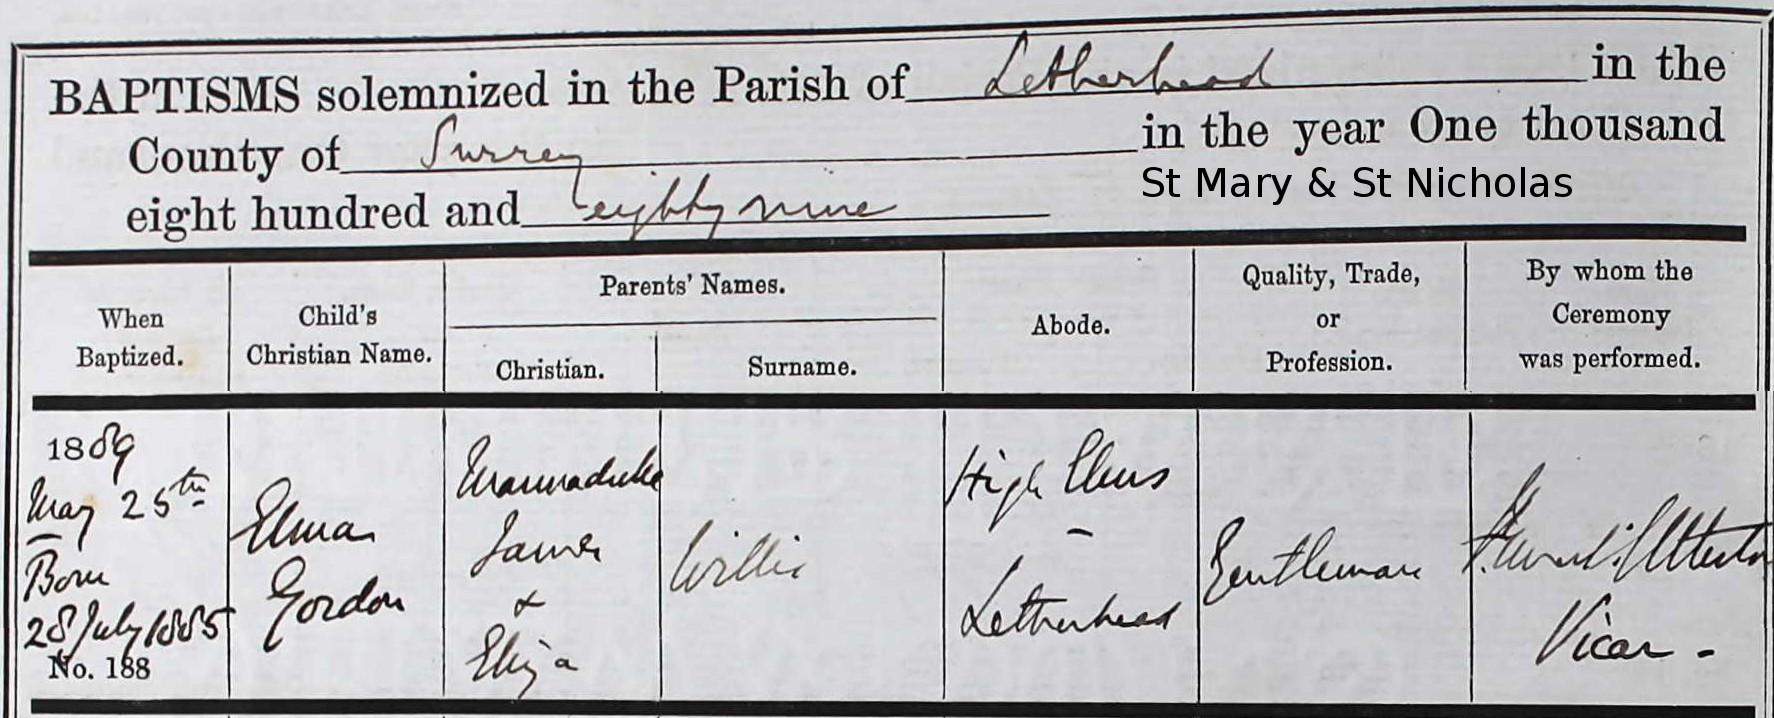 BAPTISMS solemnized in the Parish of Letherhead in the
County of Surrey in the year One thousand
St Mary & St Nicholas
eight hundred and eighty nine
When Baptized.
Child's Christian Name.
Parents' Names.
Christian.
Surname.
Abode.
Quality, Trade, or Profession.
By whom the Ceremony was performed.
1889
May 25th
Born
28 July 1885
No. 188
Elma
Gordon
Marmaduke
James
&
Eliza
Willis
High Elms
-
Letherhead
Gentleman
Vicar -